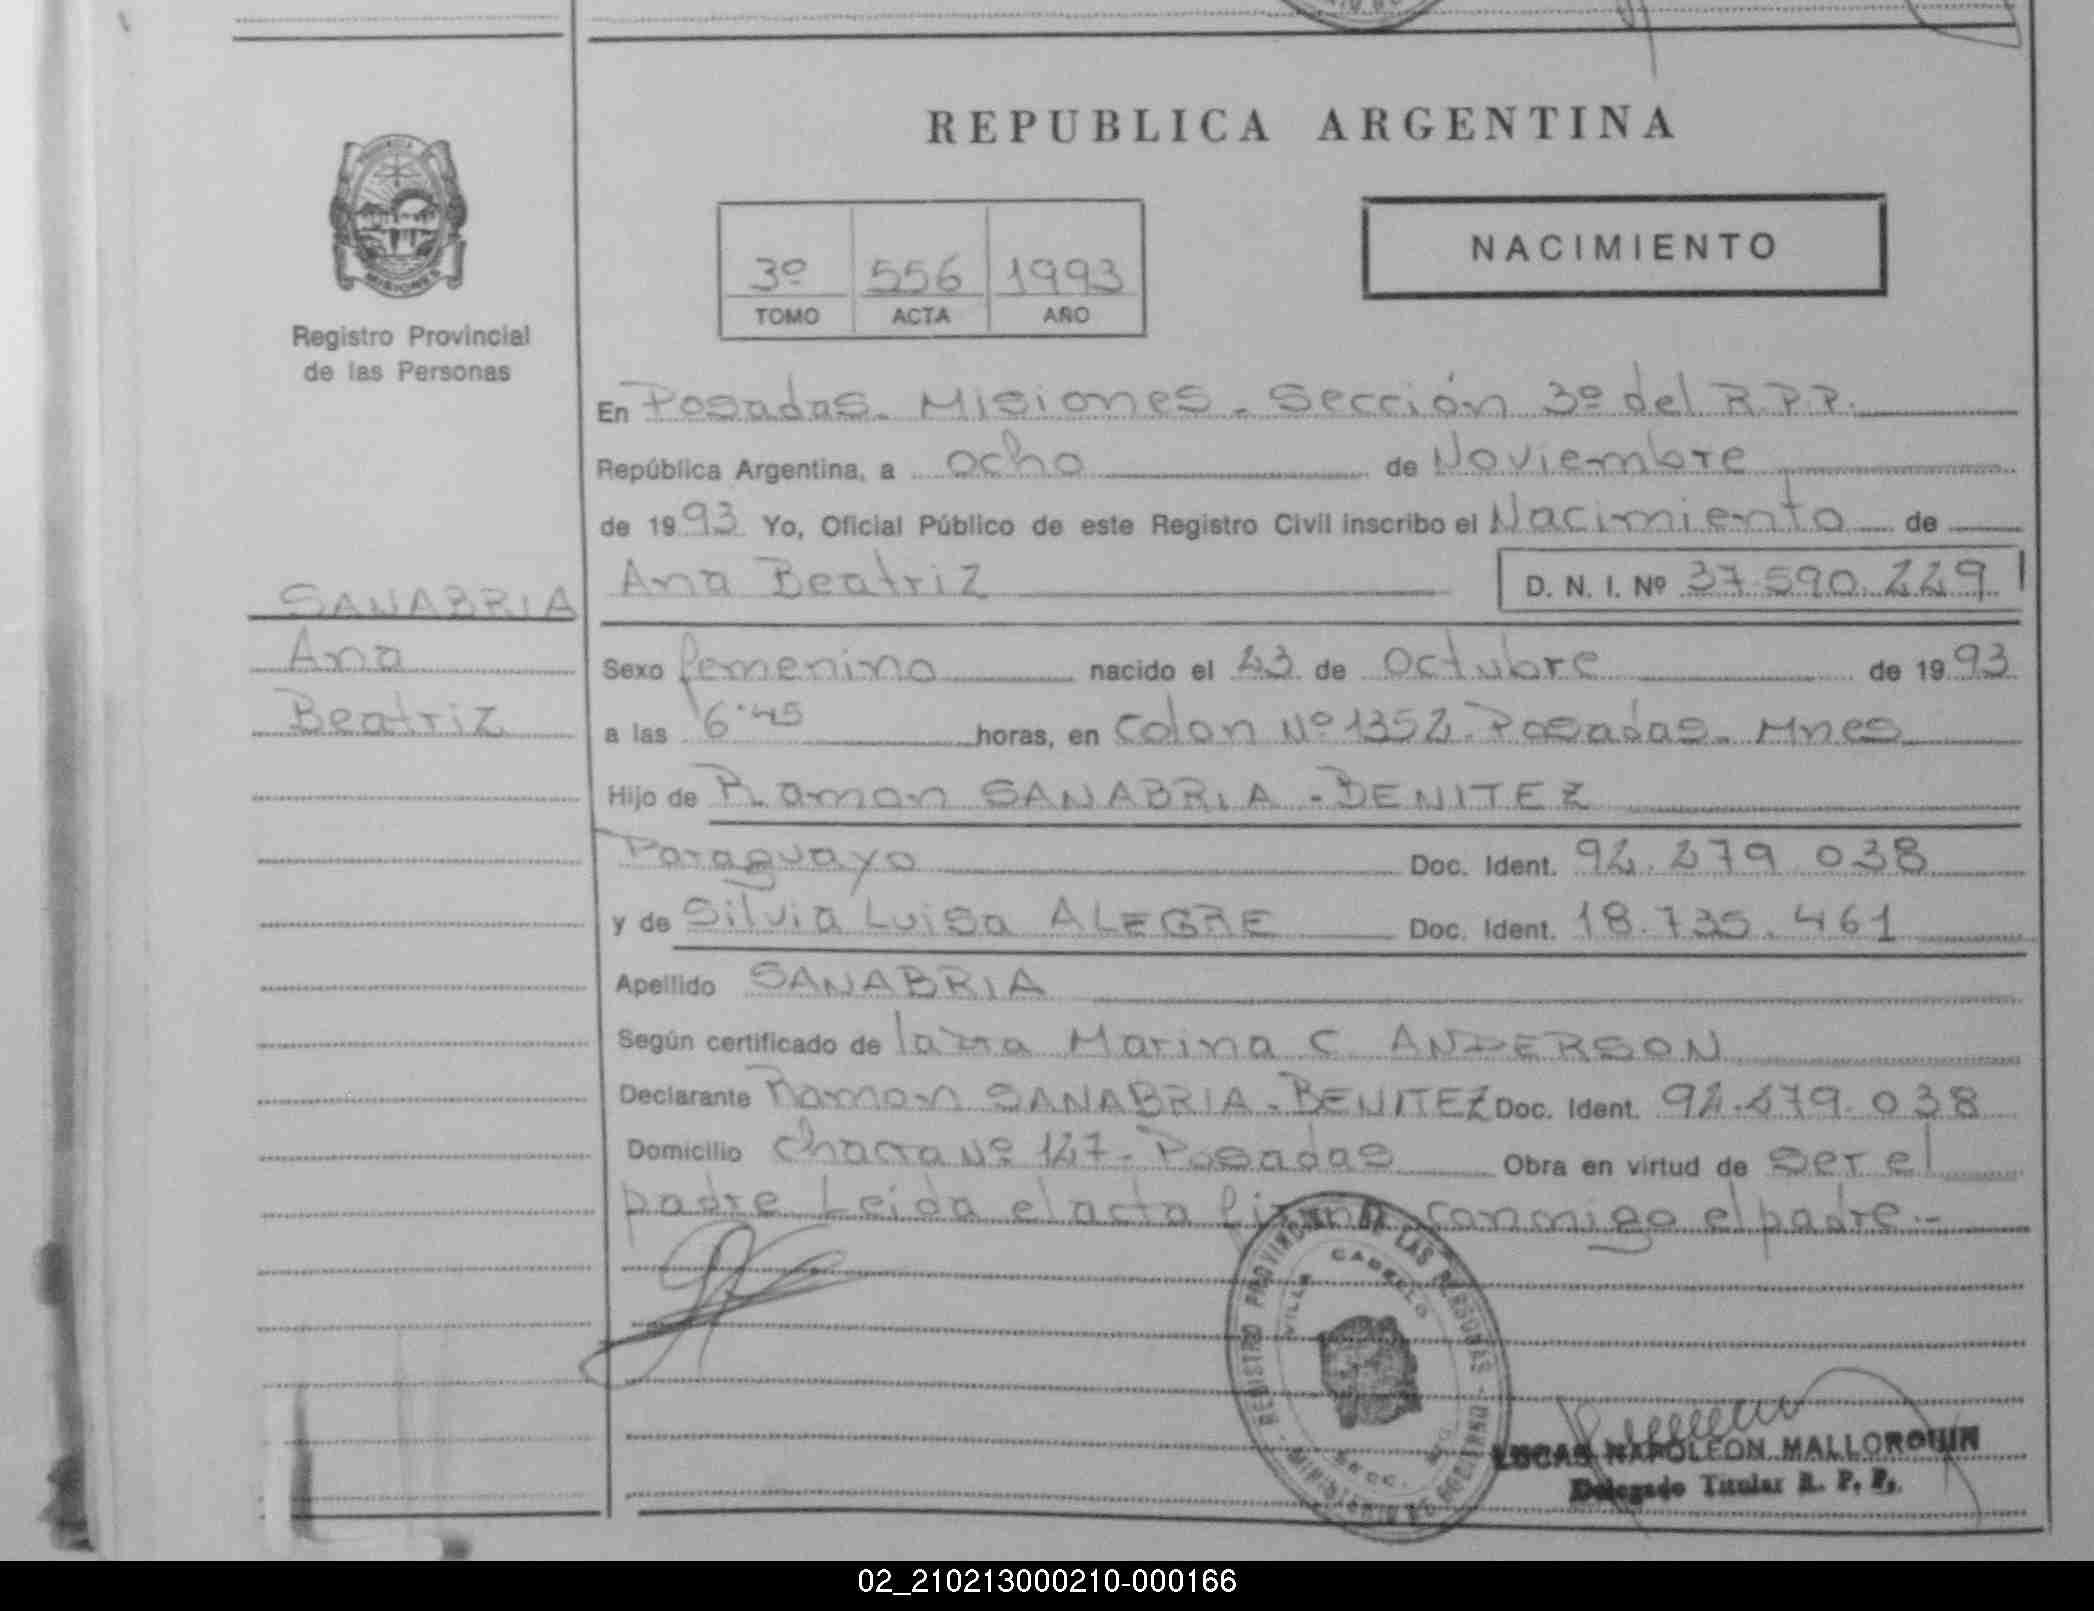 REPUBLICA ARGENTINA
MISIONES
Registro Provincial
de las Personas
3º 556 1993
TOMO ACTA AÑO
NACIMIENTO
En Posadas. Misiones. Sección 3º del R.P.P.
República Argentina, a ocho de Noviembre
de 1993 Yo, Oficial Público de este Registro Civil inscribo el Nacimiento de
Ana Beatriz D. N. I. Nº 37.590.229
SANABRIA
Ana
Beatriz
Sexo femenino nacido el 23 de Octubre de 1993
a las 6:45 horas, en Colon Nº 1352. Posadas. Mnes
Hijo de Ramon SANABRIA - BENITEZ
Paraguayo Doc. Ident. 92.279.038
y de Silvia Luisa ALEGRE Doc. Ident. 18.735.461
Apellido SANABRIA
Según certificado de la Marina C. ANDERSON
Declarante Ramon SANABRIA - BENITEZ Doc. Ident. 92.279.038
Domicilio Chacra Nº 127 - Posadas Obra en virtud de ser el
padre. Leida el acta firma conmigo el padre.-
REGISTRO PROVINCIAL DE LAS PERSONAS
VILLA CABELLO
SECC.
LUCAS NAPOLEON MALLORQUIN
Delegado Titular R. P. P.
02_210213000210-000166